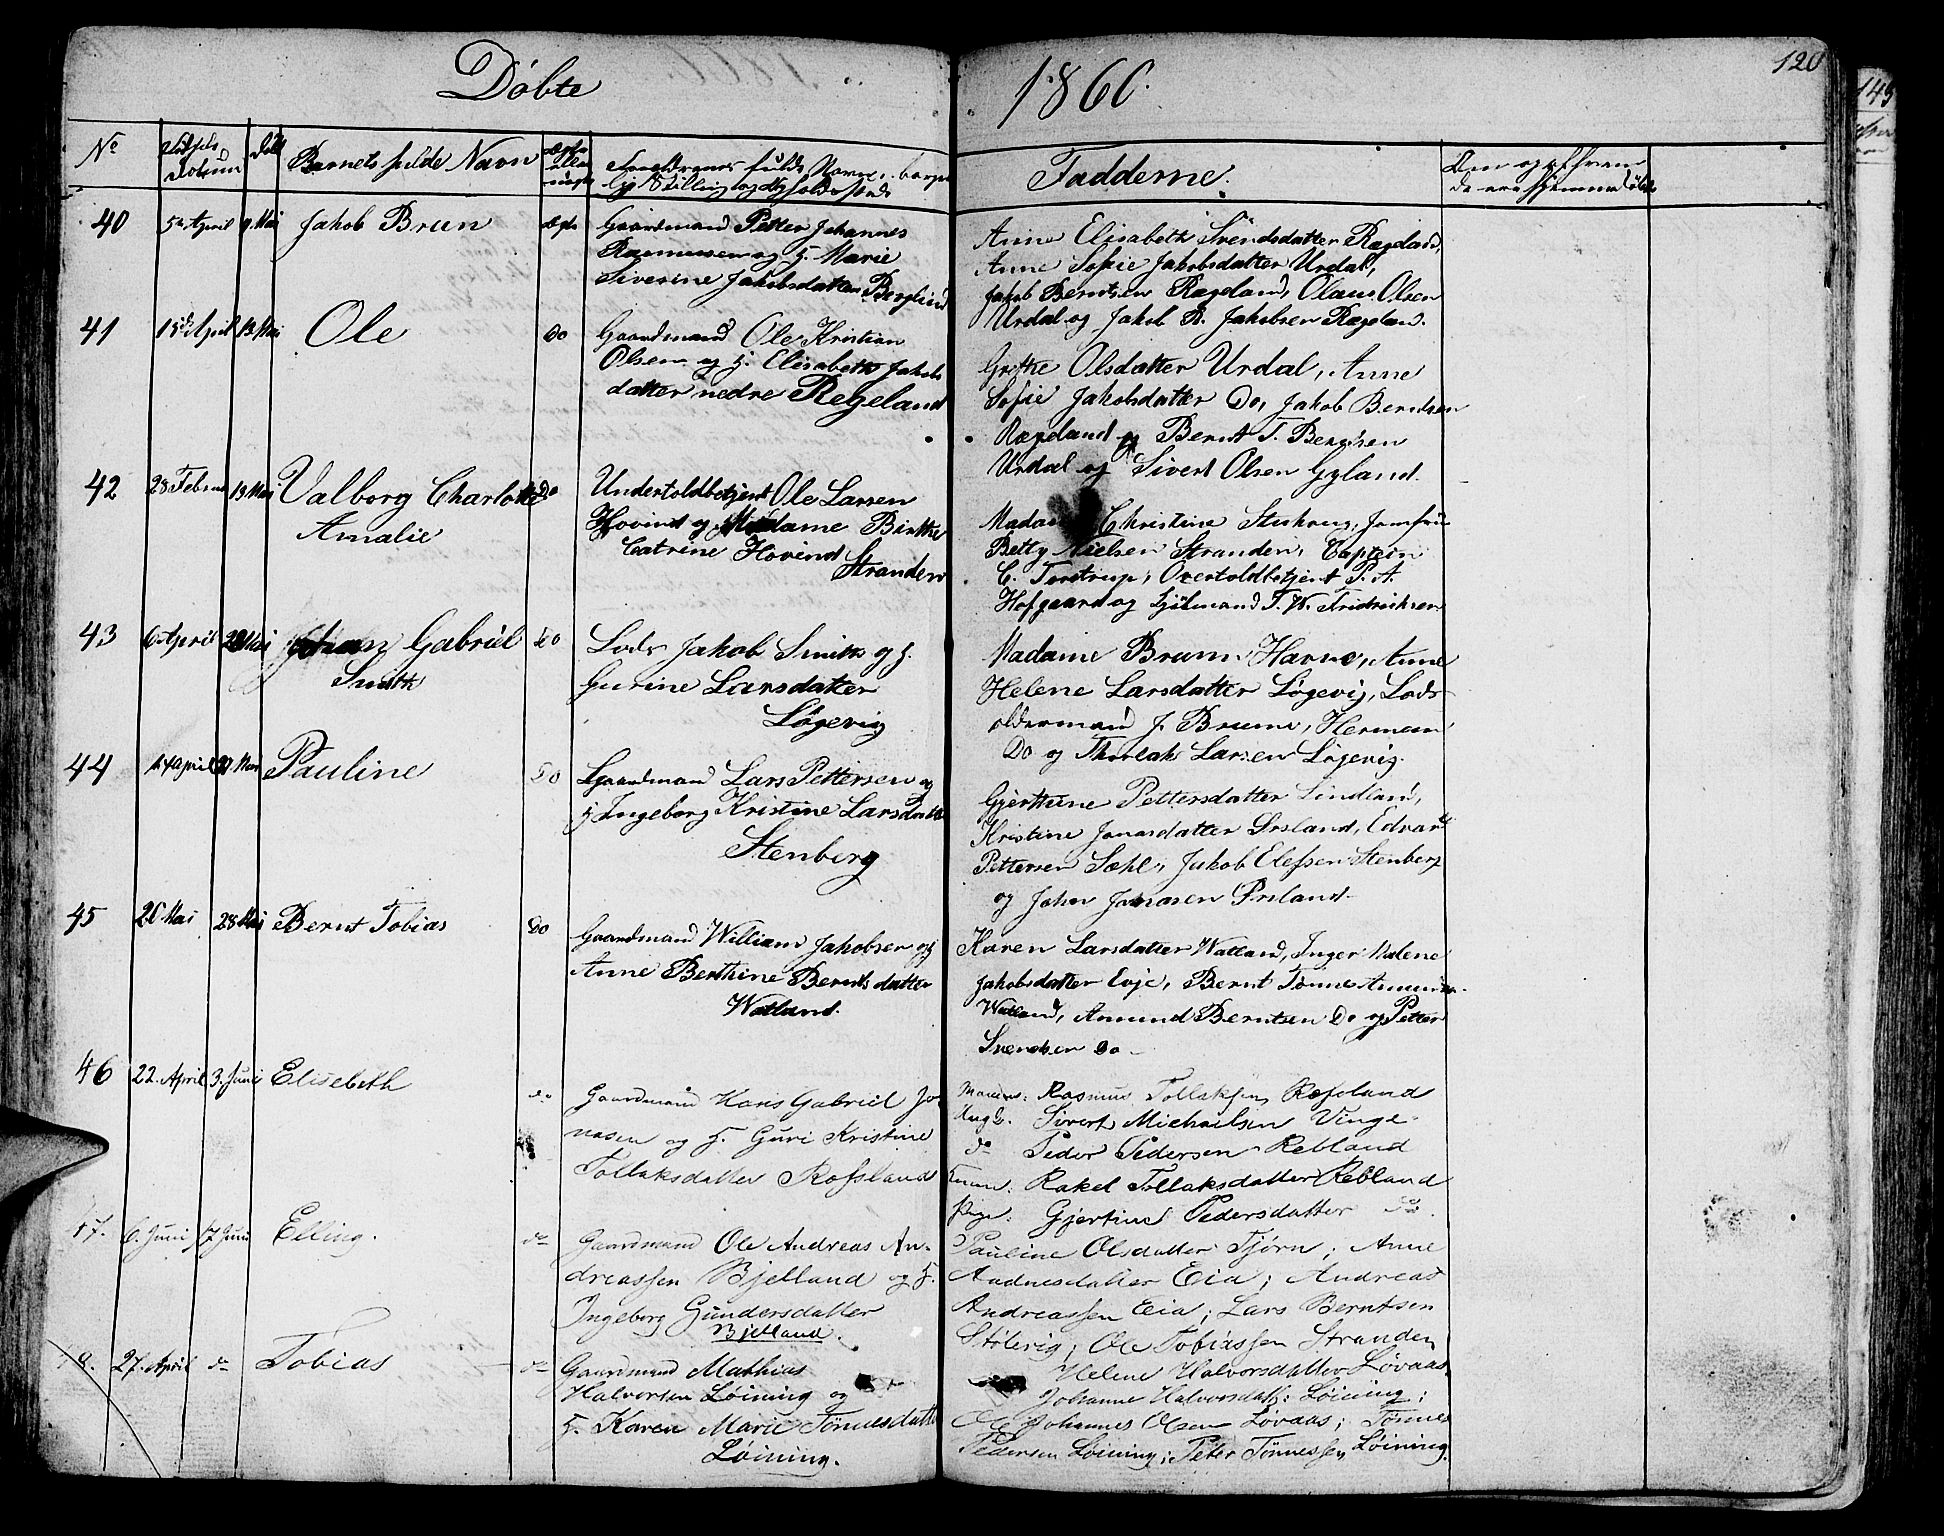 Döbte 1860. 120
149
No Fødsels Datum Barnets fulde Navn
Fadderne.
40 5te April 9 Mai Jakob Brun ægte Gaardmand Petter Johannes
Rasmussen og H. Marie
Siverine Jakobsdatter Berglind
Anne Elisabeth Svendsdatter Rægeland,
Anne Sofie Jakobsdatter Urdal,
Jakob Berntsen Rægeland, Olaus Olsen
Urdal og Jakob B. Jakobsen Rægelan.
41 15de April 13 Mai Ole Do Gaardmand Ole Kristian
Olsen og H. Elisabeth Jakobs
datter nedre Regeland
Grethe Olsdatter Urdal, Anne
Sofie Jakobsdatter Do, Jakob Berntsen
Rægeland og Bernt T. Berntsen
Urdal og Sivert Olsen Gyland.
42 28 Februar 13 Mai Valborg Charlotte Do
Amalie
Undertoldbetjent Ole Larsen
Hovind og Madame Birthe
Catrine Hovind
Stranden
Madame Christine Stuhaug, Jomfru
Betty Nielsen Stranden, Captein
C. Torstrup, Overtoldbetjent P. A.
Hofgaard og Sjömand T. W. Fridriksen
43 6 April 28 Mai Johan Gabriel Do
Smith
Lods Jakob Smith og H.
Gurine Larsdatter
Løgevig
Madame Bruun Havne, Anne
Helene Larsdatter Løgevig, Lods
oldermand J. Bruun, Herman
Do og Thorlak Larsen Løgevig.
44 14 April 28 Mai Pauline Do Gaardmand Lars Pettersen og
H Ingeborg Kristine Larsdatter
Stenberg
Gjerthine Pettersdatter Lindland,
Kristine Jonasdatter Orsland, Edvard
Pettersen Sæhl, Jakob Elefsen Stenberg
og John Jonasen Orsland.
45 26 Mai 28 Mai Bernt Tobias Do
Gaardmand William Jakobsen og H
Anne Berthine Berntsdatter
Watland.
Karen Larsdatter Watland, Inger Malene
Jakobsdatter Evje, Bernt Tønnes
Watland, Amund Berntsen Do og Petter
Svendsen Do
46 22. April 3. Juni Elisebeth do Gaardmand Hans Gabriel Jo-
nasen og H. Guri Kristine
Tollaksdatter Rofsland
Rasmus Tollaksen Rofsland
Ungk. Sivert Michaelsen Vinge
do Peder Pedersen Rebland
Rakel Tollaksdatter Rebland
Pige: Gjertine Pedersdatter do.
47. 6. Juni 7 Juni Elling. do Gaardmand Ole Andreas An-
dreassen Bjelland og H.
Ingeborg Gundersdatter
Bjelland.
Pauline Olsdatter Tjørn; Anne
Andreasdatter Eia; Andreas
Andreassen Eia; Lars Berntsen
Stølevig; Ole Tobiassen Stranden
48. 27. April do Tobias do Gaardmand Mathias
Halvorsen Løining og
H. Karen Marie Tønnesdatter
Løining.
Helene Halvorsdatter Løvaas
Johanne Halvorsdatt: Løining;
Ole Johannes Olsen Løvaas; Tønnes
Pedersen Løining; Peter Tønnessen Løining.